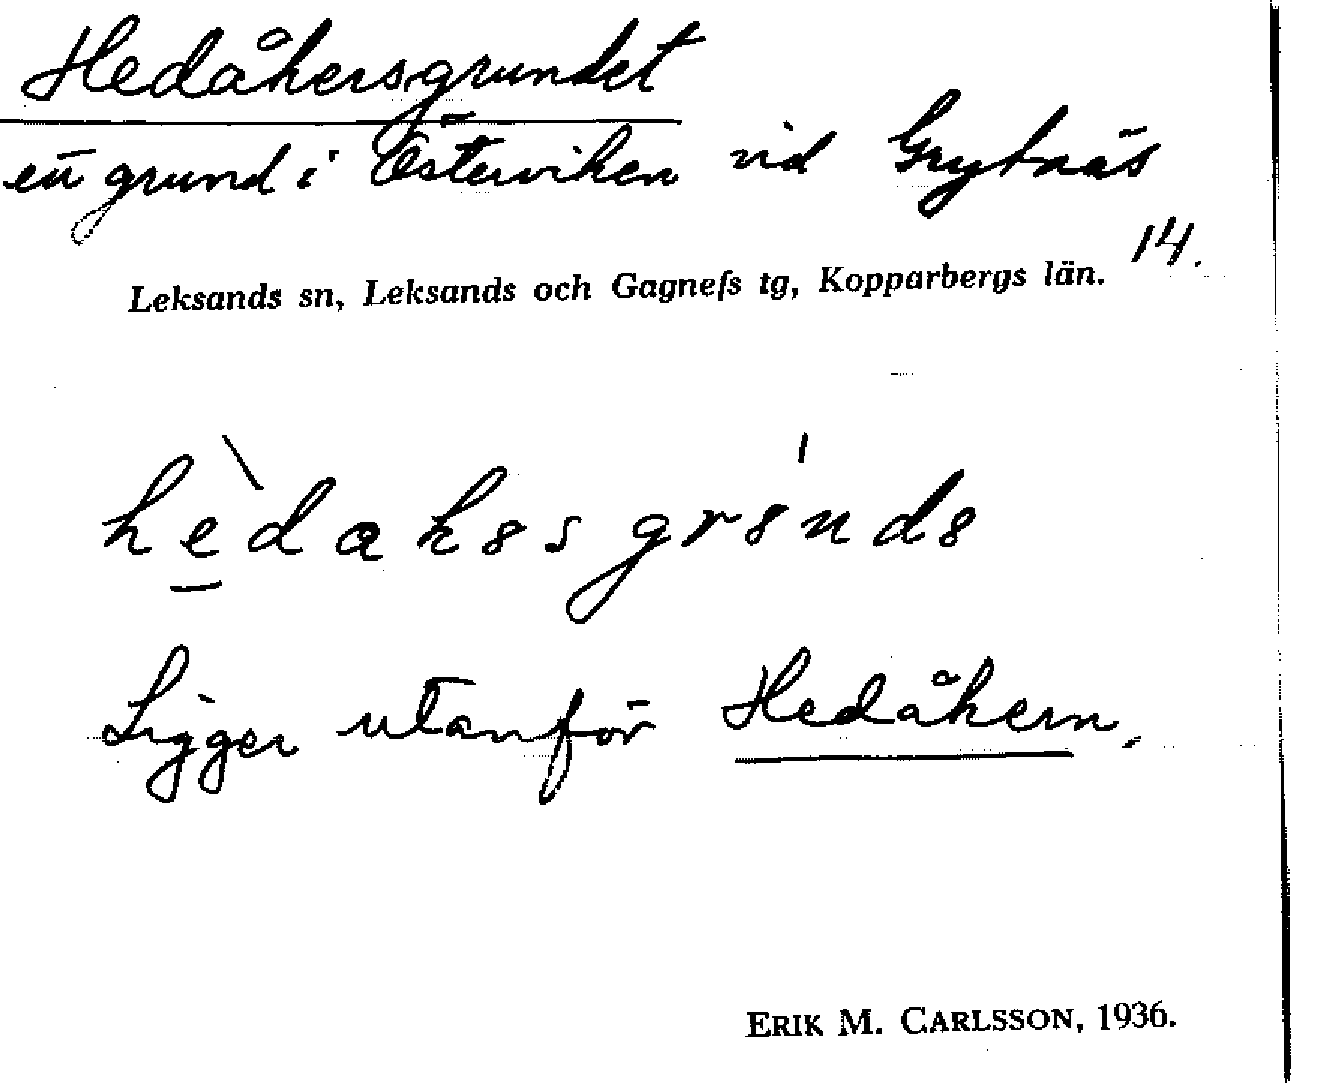 Hedåkersgrundet
ett grund i Österviken vid Grytnäs
14.
Leksands sn, Leksands och Gagnefs tg, Kopparbergs län.
Ligger utanför Hedåkern.
ERIK M. CARLSSON, 1936.